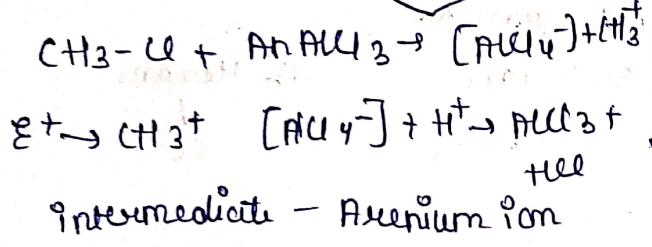 CH3-Cl + An AlCl3 → [AlCl4-]+CH3+
E+→ CH3+ [AlCl4-] + H+→ AlCl3 +
HCl
intermediate - Arenium ion